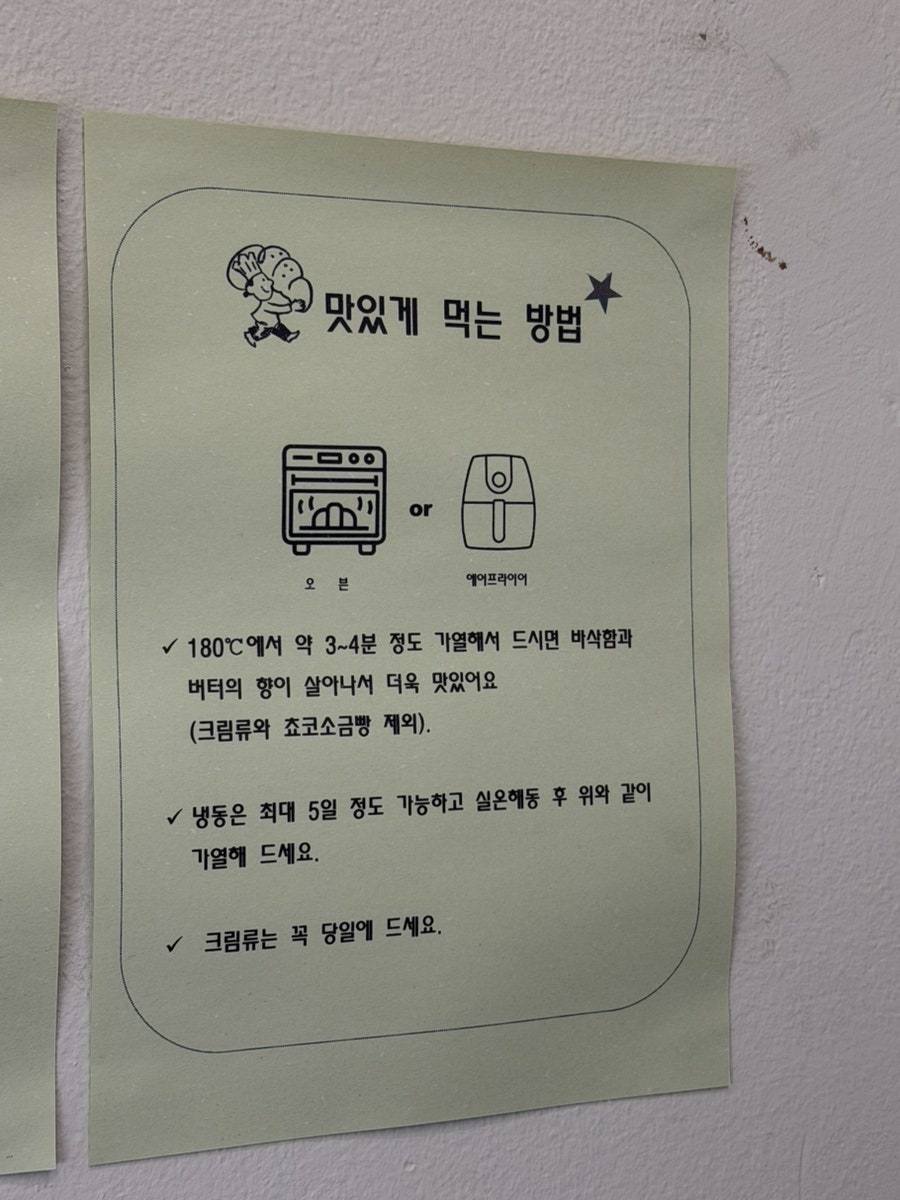 맛있게 먹는 방법
or
오 븐
에어프라이어
✓ 180℃에서 약 3~4분 정도 가열해서 드시면 바삭함과
버터의 향이 살아나서 더욱 맛있어요
(크림류와 쵸코소금빵 제외).
✓ 냉동은 최대 5일 정도 가능하고 실온해동 후 위와 같이
가열해 드세요.
✓ 크림류는 꼭 당일에 드세요.